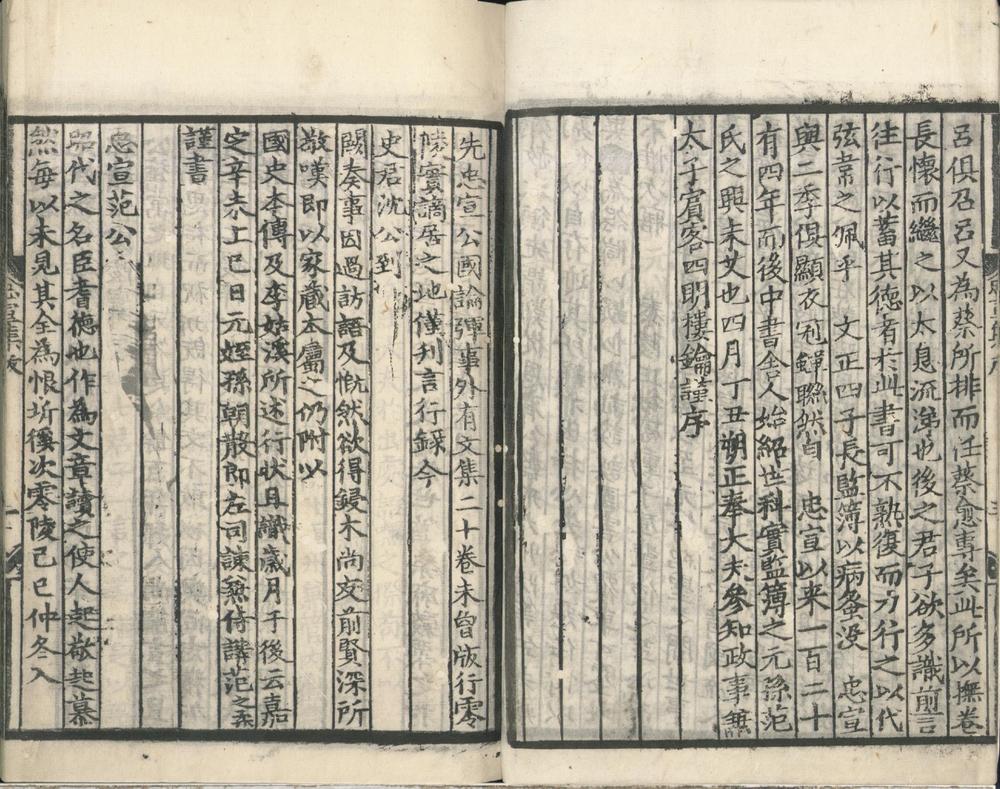 呂俱召呂又為蔡所排而任蔡愈專矣此所以撫卷
長懷而繼之以太息流涕也後之君子欲多識前言
往行以蓄其德者於此書可不熟復而力行之以代
弦韋之佩乎　文正四子長監簿以病蚤没　忠宣
與二季俱顯衣冠蟬聯然自　忠宣以来一百二十
有四年而後中書舍人始紹世科實監簿之元孫范
氏之興未艾也四月丁丑朔正奉大夫參知政事兼
太子賓客四明樓鑰謹序
先忠宣公國論彈事外有文集二十卷未曾版行零
陵實謫居之地僅刋言行録今
史君沈公到
闕奏事因過訪語及慨然欲得鋟木尚友前賢深所
敬嘆即以家藏本屬之仍附以
國史本傳及李姑溪所述行状且識歲月于後云嘉
定辛未上巳日元姪孫朝散郎左司諫兼侍講范之柔
謹書
忠宣范公
昭代之名臣耆德也作為文章讀之使人起敬起慕
然每以未見其全為恨圻後次零陵己巳仲冬入
忠宣集